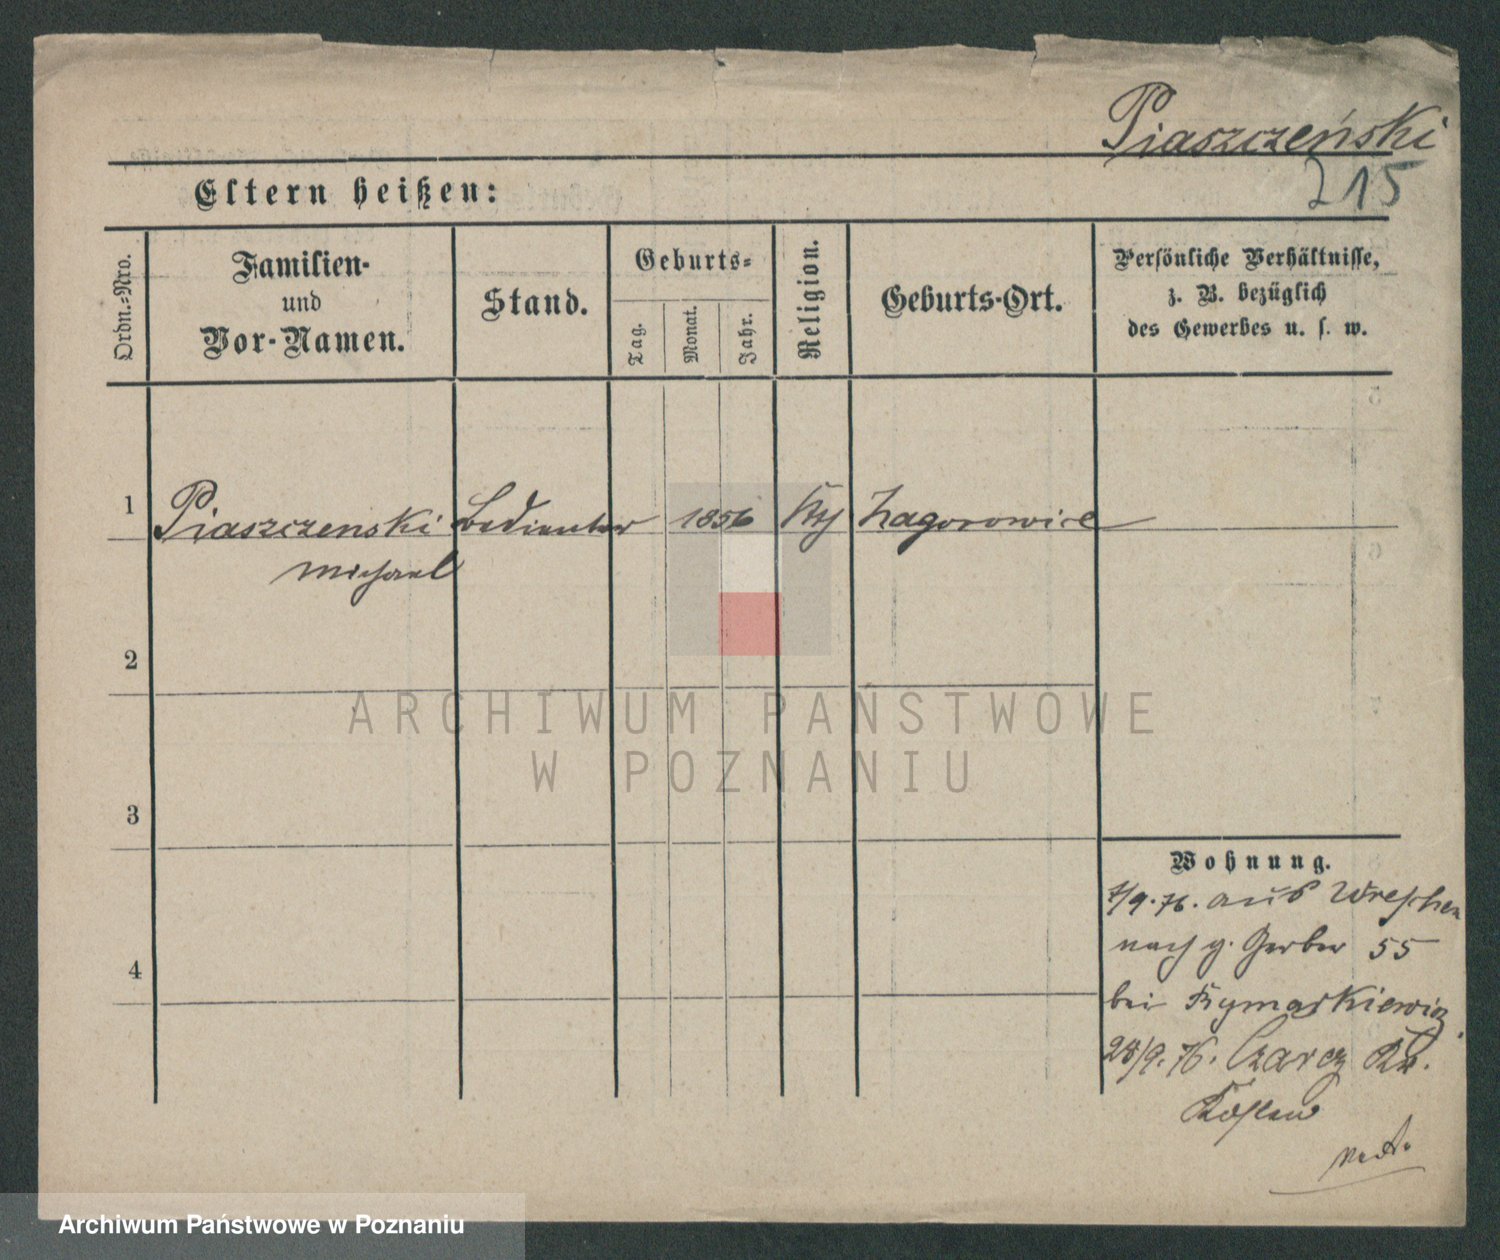 Piaszczeński
215
Eltern heißen:
Ordn.-Nro.
Familien-
und
Vor-Namen.
Stand.
Geburts-
Tag.
Monat.
Jahr.
Religion.
Geburts-Ort.
Persönliche Verhältnisse,
z. B. bezüglich
des Gewerbes u. s. w.
1 Piaszczenski Bedienter 1856 Zagorowice
Michael
2
3
4
ARCHIWUM PAŃSTWOWE
W POZNANIU
Wohnung.
7/9.76. aus Wreschen
nach g. Gerber 55
bei Rymarkiewicz
28/9.76. Czarcz Kr.
Kosten
Archiwum Państwowe w Poznaniu